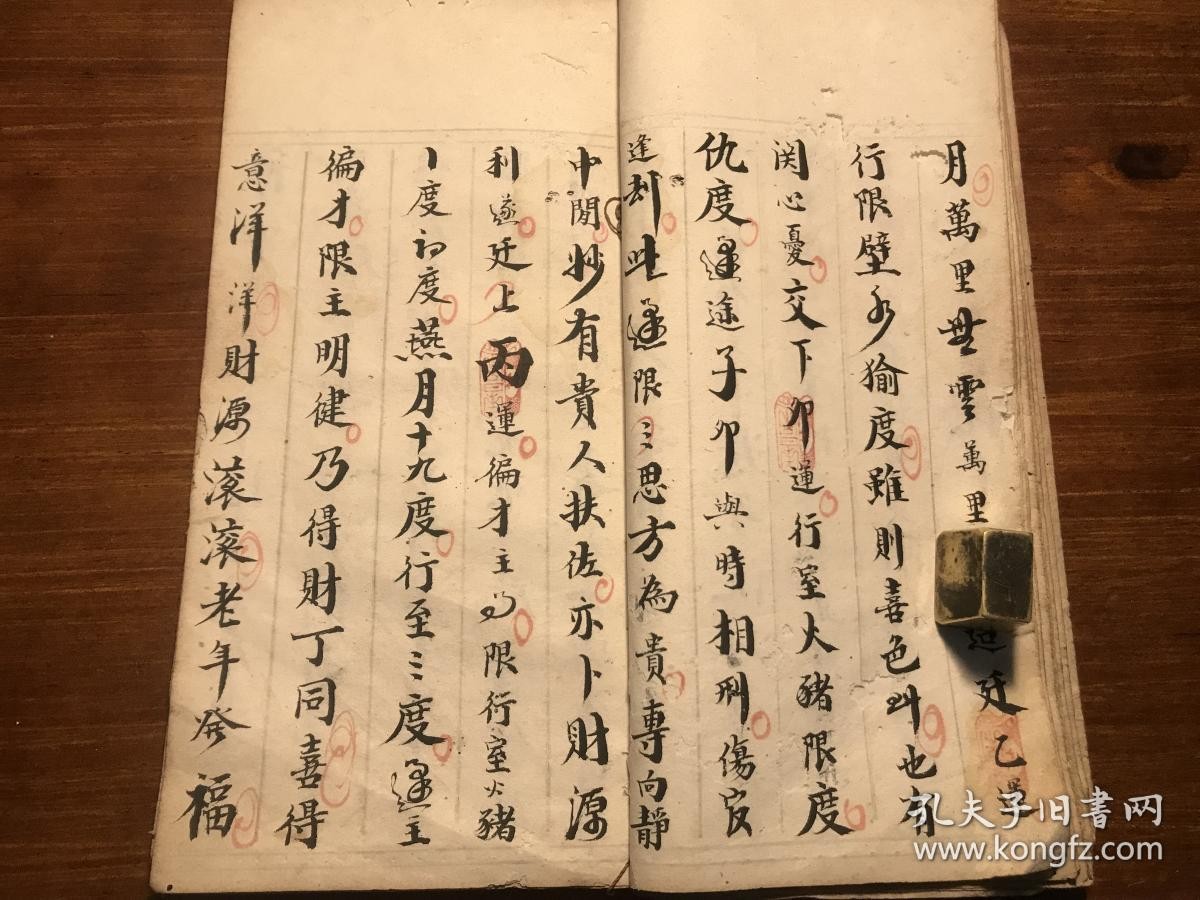 月萬里無雲萬里廷乙運
行限壁水㺄度雖則喜色叫也有
関心憂交下卯運行室火豬限度
仇度逢途子卯與時相刑傷官
逢刦吐逢限三思方為貴專向静
中間妙有貴人扶佐亦卜財源
利遂廷上丙運偏才主限行室火豬
度初度燕月十九度行至三度逢主
偏才限主明健乃得財丁同喜得
意洋洋財源滚滚老年發福
孔夫子旧书网
www.kongfz.com